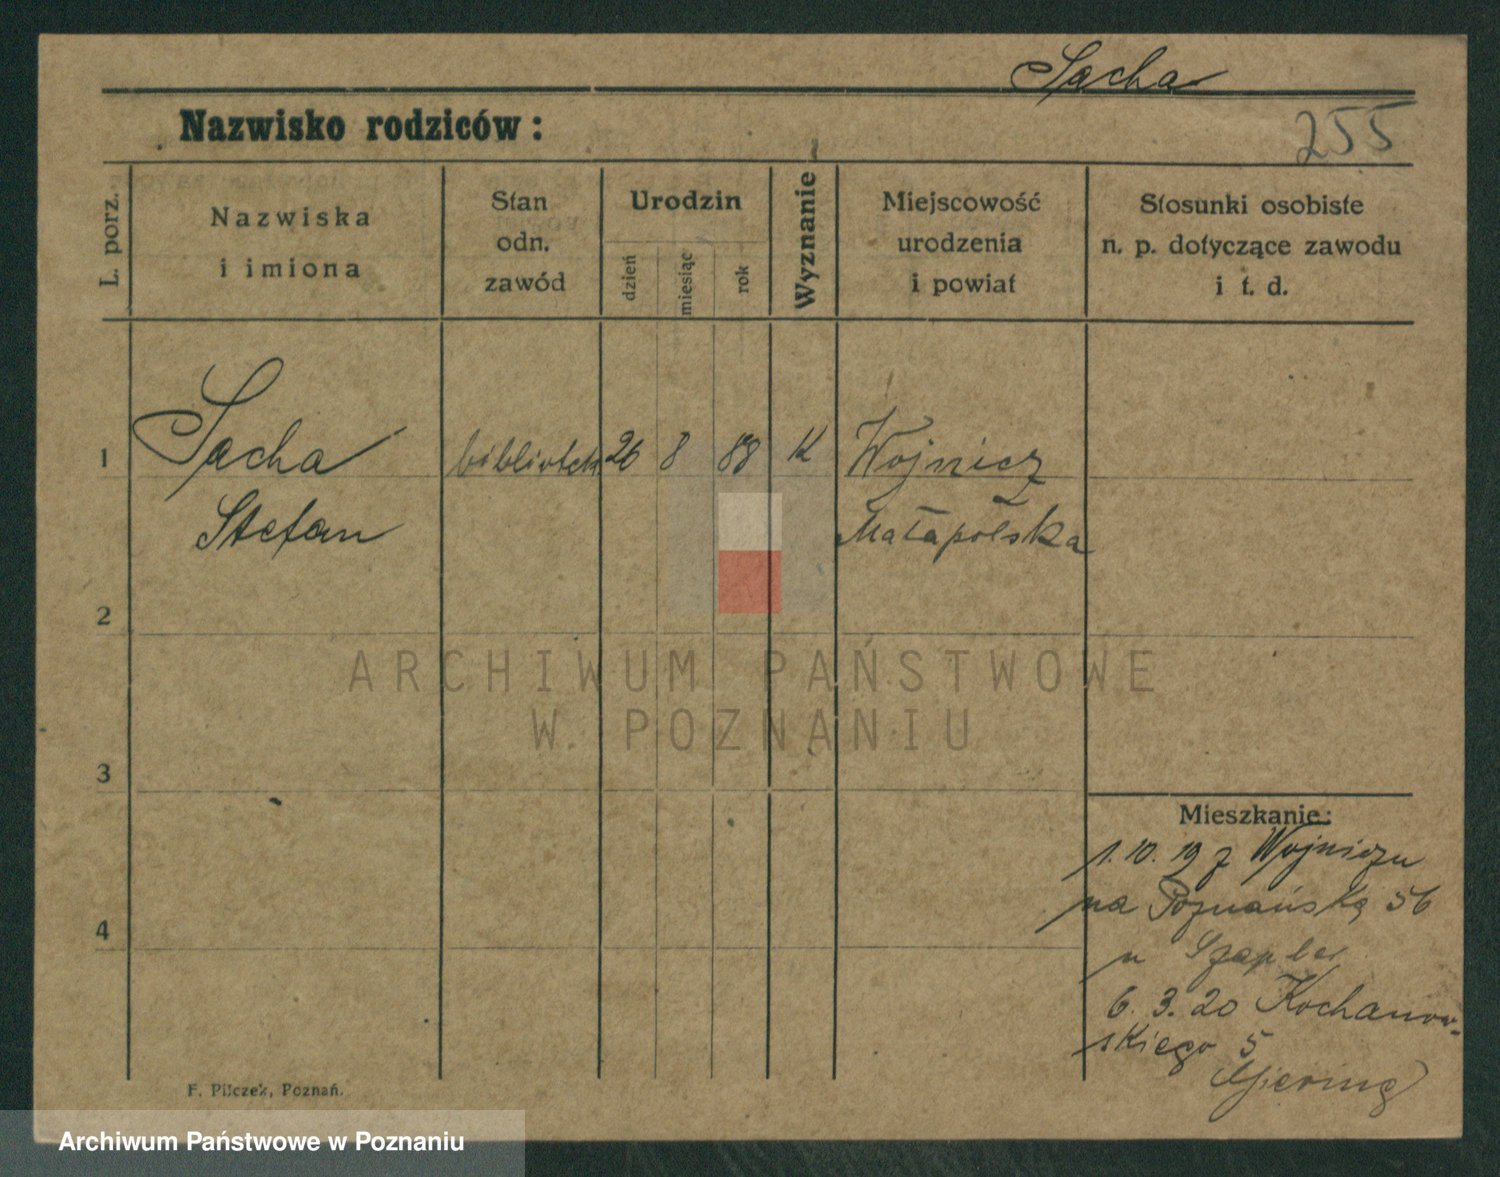 Sacha
Nazwisko rodziców:
255
L. porz.
Nazwiska
i imiona
Stan
odn.
zawód
Urodzin
dzień
miesiąc
rok
Wyznanie
Miejscowość
urodzenia
i powiat
Stosunki osobiste
n. p. dotyczące zawodu
i t. d.
1
Sacha
Stefan
bibliotek
26
8
88
K
Wojnicz
Małapolska
2
ARCHIWUM PAŃSTWOWE
W POZNANIU
3
4
Mieszkanie:
1. 10. 19 z Wojnicza
na Poznańską 56
u Szapler
6. 3. 20 Kochanow-
skiego 5
F. Pilczek, Poznań.
Archiwum Państwowe w Poznaniu